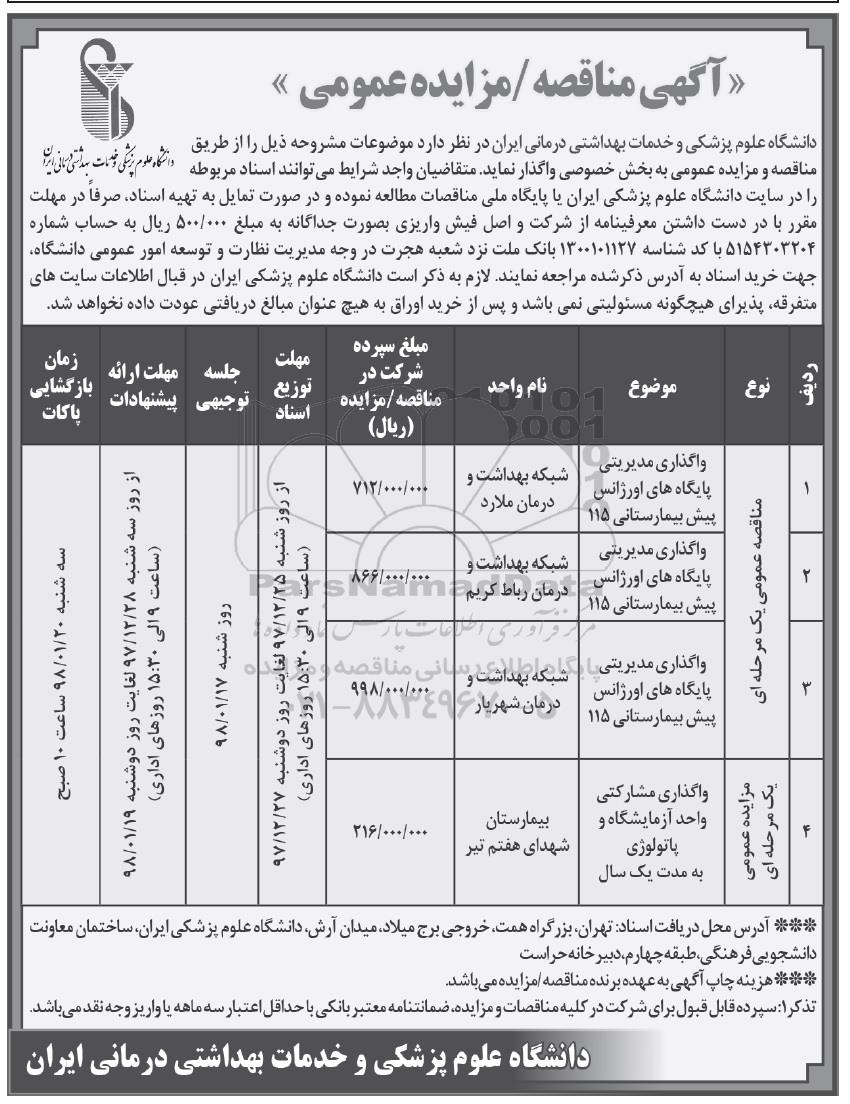 «آگهی مناقصه/مزایده عمومی»
دانشگاه علوم پزشکی و خدمات بهداشتی درمانی ایران
دانشگاه علوم پزشکی و خدمات بهداشتی درمانی ایران در نظر دارد موضوعات مشروحه ذیل را از طریق
مناقصه و مزایده عمومی به بخش خصوصی واگذار نماید. متقاضیان واجد شرایط می‌توانند اسناد مربوطه
را در سایت دانشگاه علوم پزشکی ایران یا پایگاه ملی مناقصات مطالعه نموده و در صورت تمایل به تهیه اسناد، صرفاً در مهلت
مقرر با در دست داشتن معرفینامه از شرکت و اصل فیش واریزی بصورت جداگانه به مبلغ ۵۰۰/۰۰۰ ریال به حساب شماره
۵۱۵۴۳۰۳۲۰۴ با کد شناسه ۱۳۰۰۱۰۱۱۲۷ بانک ملت نزد شعبه هجرت در وجه مدیریت نظارت و توسعه امور عمومی دانشگاه،
جهت خرید اسناد به آدرس ذکرشده مراجعه نمایند. لازم به ذکر است دانشگاه علوم پزشکی ایران در قبال اطلاعات سایت های
متفرقه، پذیرای هیچگونه مسئولیتی نمی باشد و پس از خرید اوراق به هیچ عنوان مبالغ دریافتی عودت داده نخواهد شد.
ردیف
نوع
موضوع
نام واحد
مبلغ سپرده
شرکت در
مناقصه/مزایده
(ریال)
مهلت
توزیع
اسناد
جلسه
توجیهی
مهلت ارائه
پیشنهادات
زمان
بازگشایی
پاکات
۱
مناقصه عمومی یک مرحله ای
واگذاری مدیریتی
پایگاه های اورژانس
پیش بیمارستانی ۱۱۵
شبکه بهداشت و
درمان ملارد
۷۱۲/۰۰۰/۰۰۰
از روز شنبه ۹۷/۱۲/۲۵ لغایت روز دوشنبه ۹۷/۱۲/۲۷
(ساعت ۹ الی ۱۵:۳۰ روزهای اداری)
روز شنبه ۹۸/۰۱/۱۷
از روز سه شنبه ۹۷/۱۲/۲۸ لغایت روز دوشنبه ۹۸/۰۱/۱۹
(ساعت ۹ الی ۱۵:۳۰ روزهای اداری)
سه شنبه ۹۸/۰۱/۲۰ ساعت ۱۰ صبح
۲
واگذاری مدیریتی
پایگاه های اورژانس
پیش بیمارستانی ۱۱۵
شبکه بهداشت و
درمان رباط کریم
۸۶۶/۰۰۰/۰۰۰
۳
واگذاری مدیریتی
پایگاه های اورژانس
پیش بیمارستانی ۱۱۵
شبکه بهداشت و
درمان شهریار
۹۹۸/۰۰۰/۰۰۰
۴
مزایده عمومی
یک مرحله ای
واگذاری مشارکتی
واحد آزمایشگاه و
پاتولوژی
به مدت یک سال
بیمارستان
شهدای هفتم تیر
۲۱۶/۰۰۰/۰۰۰
ParsNamadData
مرکز فرآوری اطلاعات پارس نماد داده ها
پایگاه اطلاع رسانی مناقصه و مزایده
۰۲۱-۸۸۳۴۹۶۷۰-۵
※※※ آدرس محل دریافت اسناد: تهران، بزرگراه همت، خروجی برج میلاد، میدان آرش، دانشگاه علوم پزشکی ایران، ساختمان معاونت
دانشجویی فرهنگی، طبقه چهارم، دبیرخانه حراست
※※※ هزینه چاپ آگهی به عهده برنده مناقصه/مزایده می‌باشد.
تذکر۱: سپرده قابل قبول برای شرکت در کلیه مناقصات و مزایده، ضمانتنامه معتبر بانکی با حداقل اعتبار سه ماهه یا واریز وجه نقد می‌باشد.
دانشگاه علوم پزشکی و خدمات بهداشتی درمانی ایران